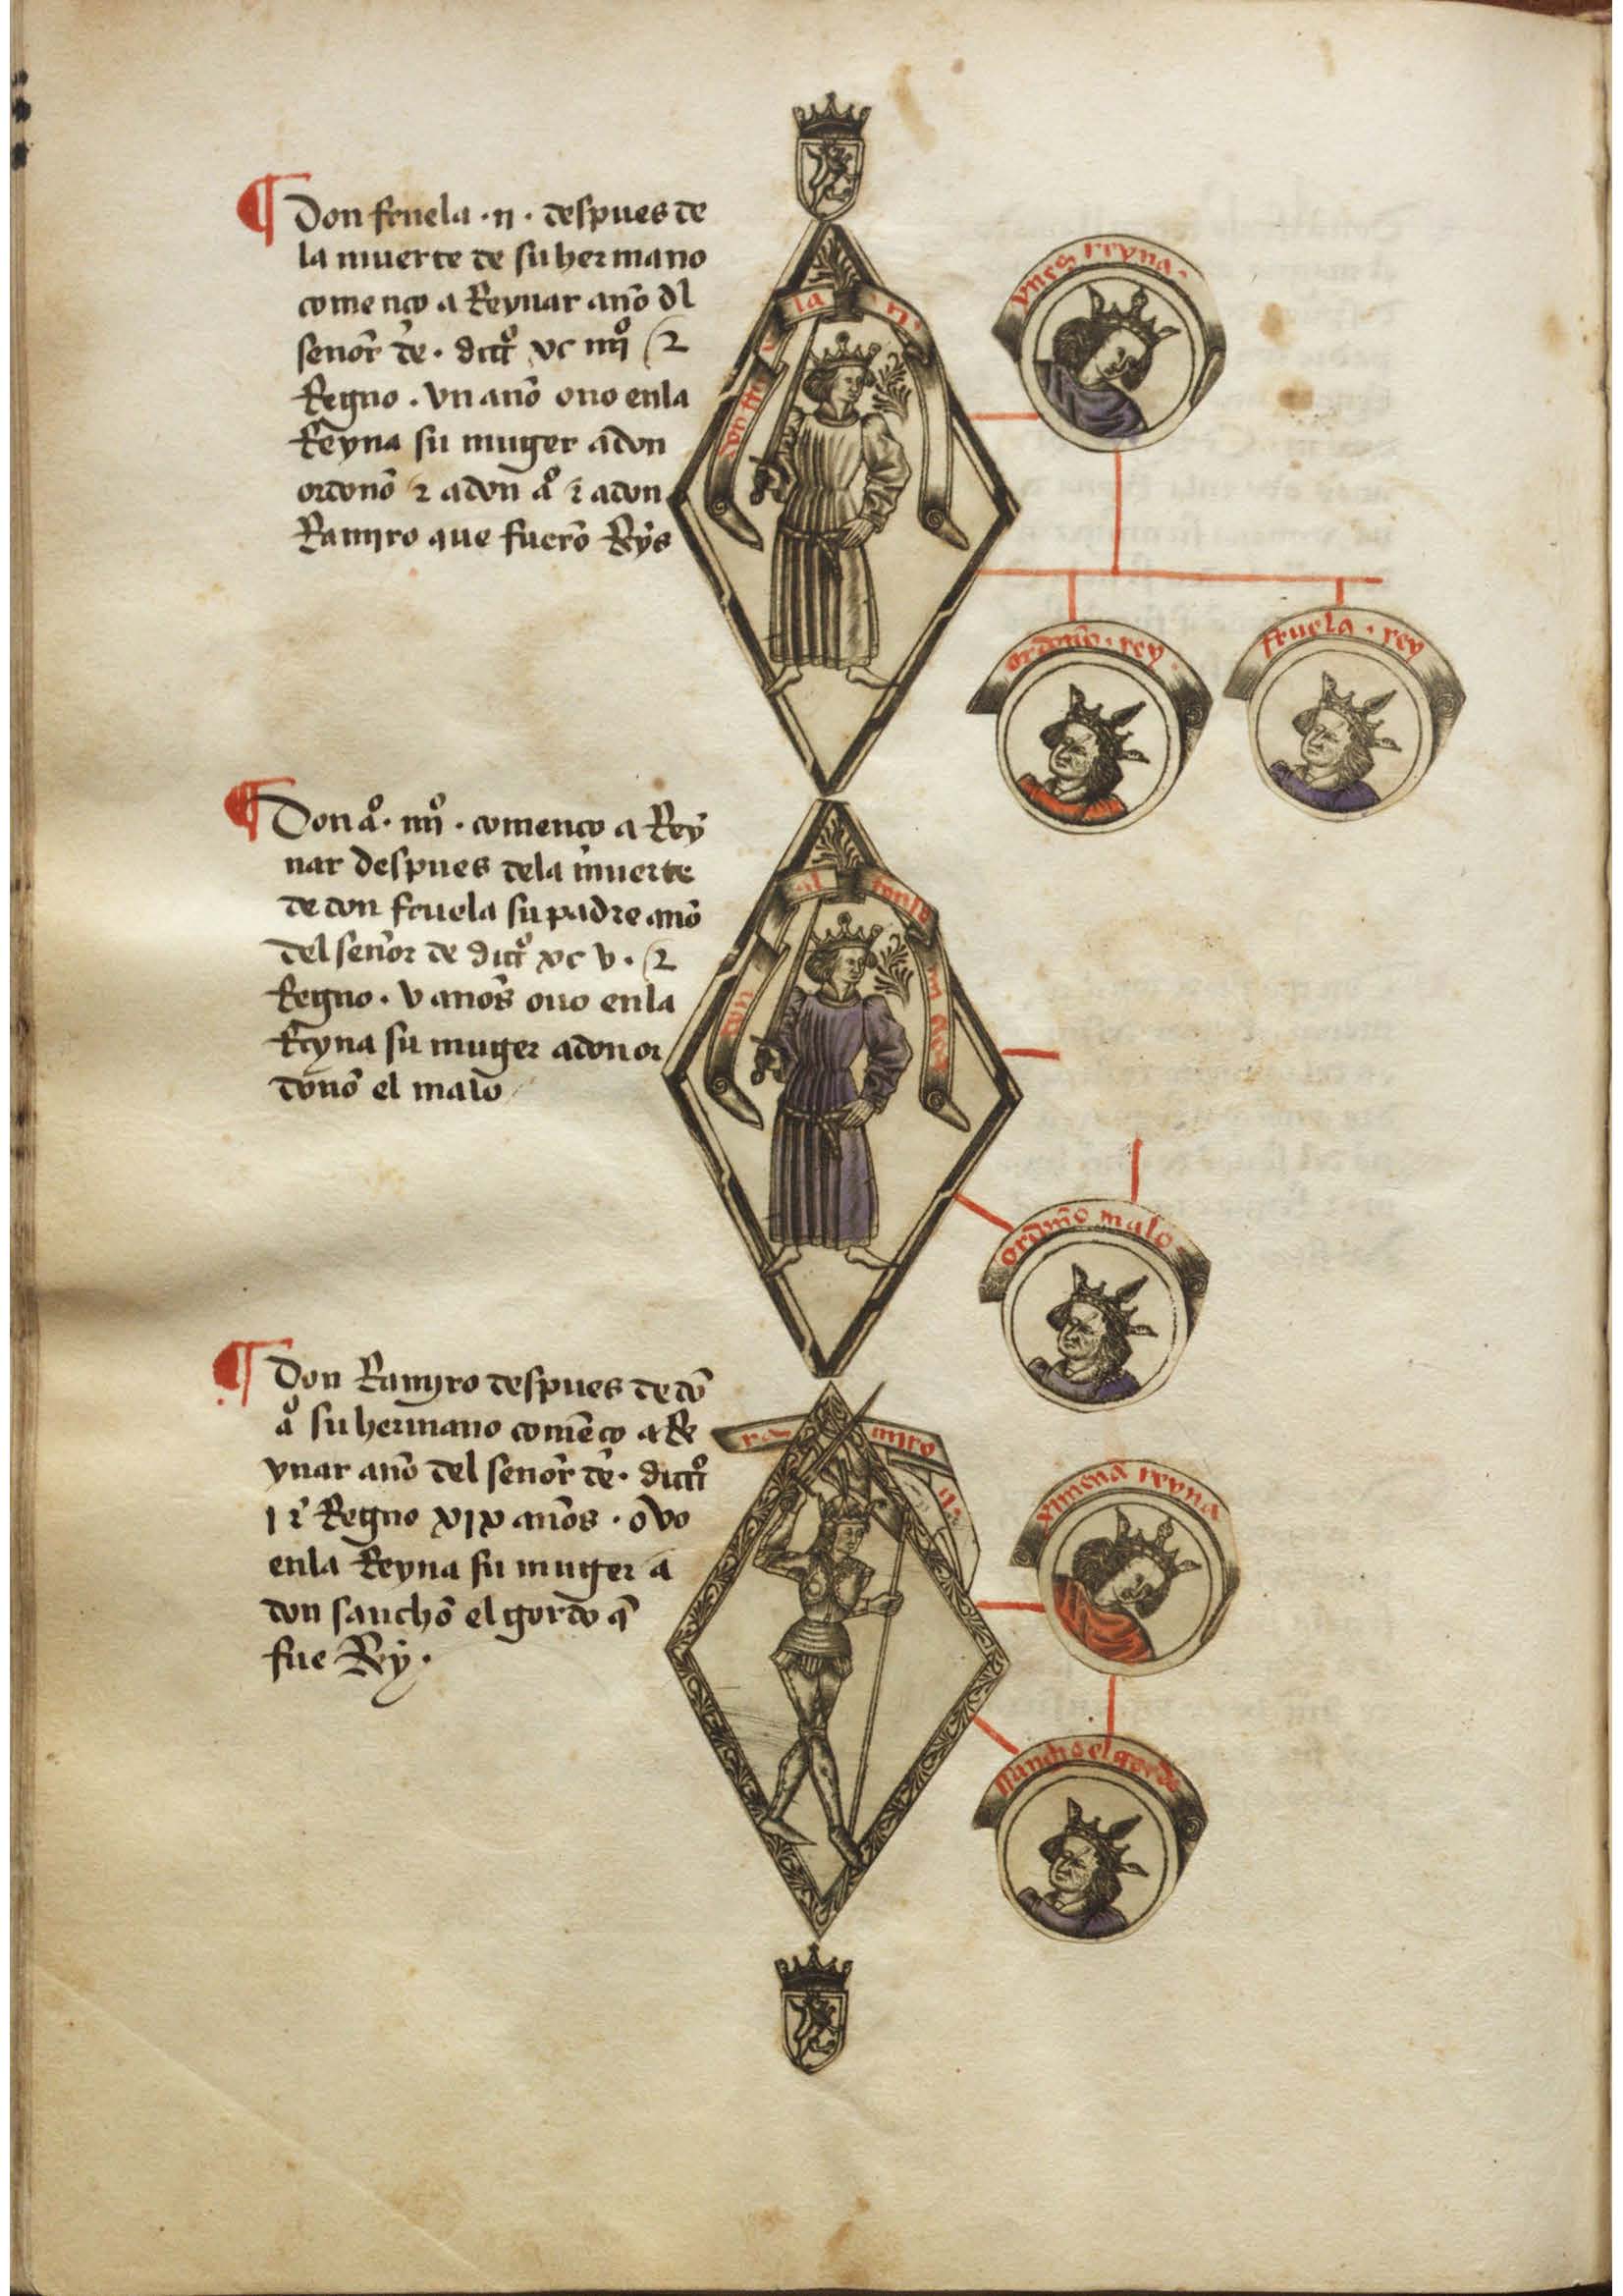 Don fruela .ii. despues de
la muerte de su hermano
començo a Reynar año dl
señor de . dccco xc iiiio ⁊
Regno . vn año ouo en la
Reyna su muger a don
ordoño ⁊ a don ao ⁊ a don
Ramiro que fuerō Rey̅s
don fru
la ii
ynes reyna.
ordoño . rey .
fruela . rey
Don ao . iiiio . començo a Rey
nar despues de la muerte
de don fruela su padre año
del señor de dccco xc v . ⁊
Regno . v años ouo en la
Reyna su muger a don or
doño el malo
don al
ordoño malo
Don Ramyro despues de dō
ao su hermano comēço a Re
ynar año del señor de . dcccco
i ⁊ Regno xix años . ovo
en la Reyna su muger a
don sancho el gordo q̄
fue Rey .
ra miro
ximena reyna
ssancho el gordo